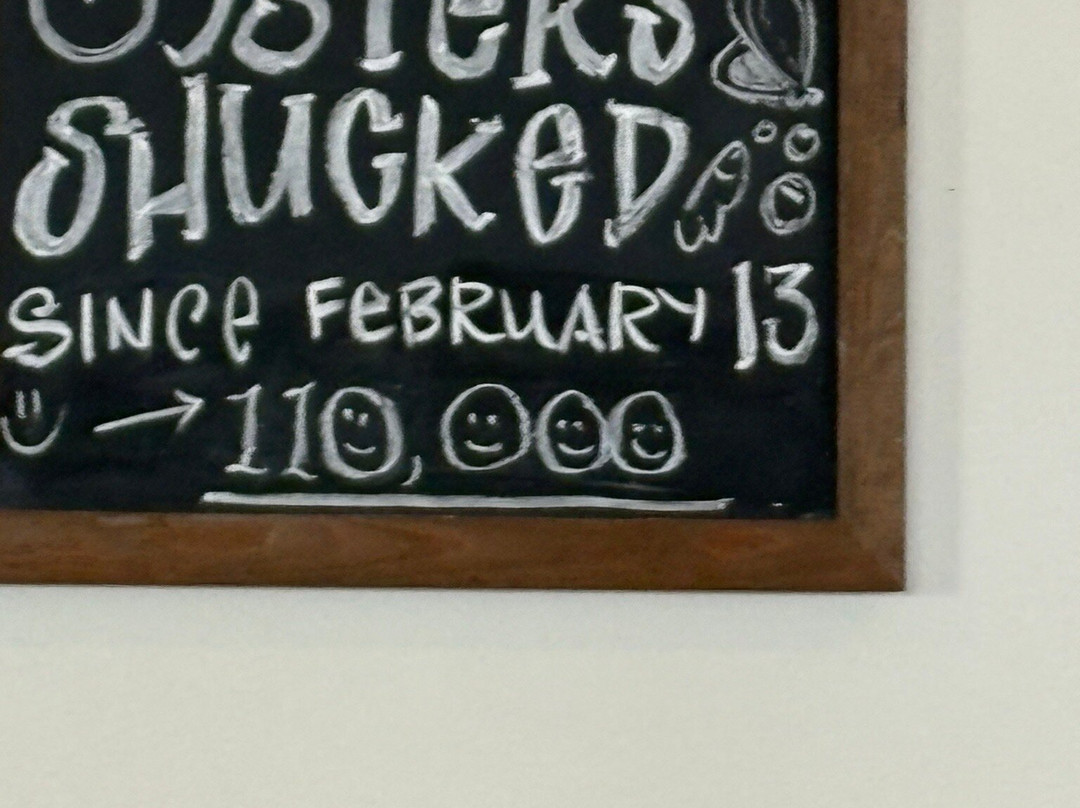 OYSTERS
SHUCKED
SINCE FEBRUARY 13
→ 110,000